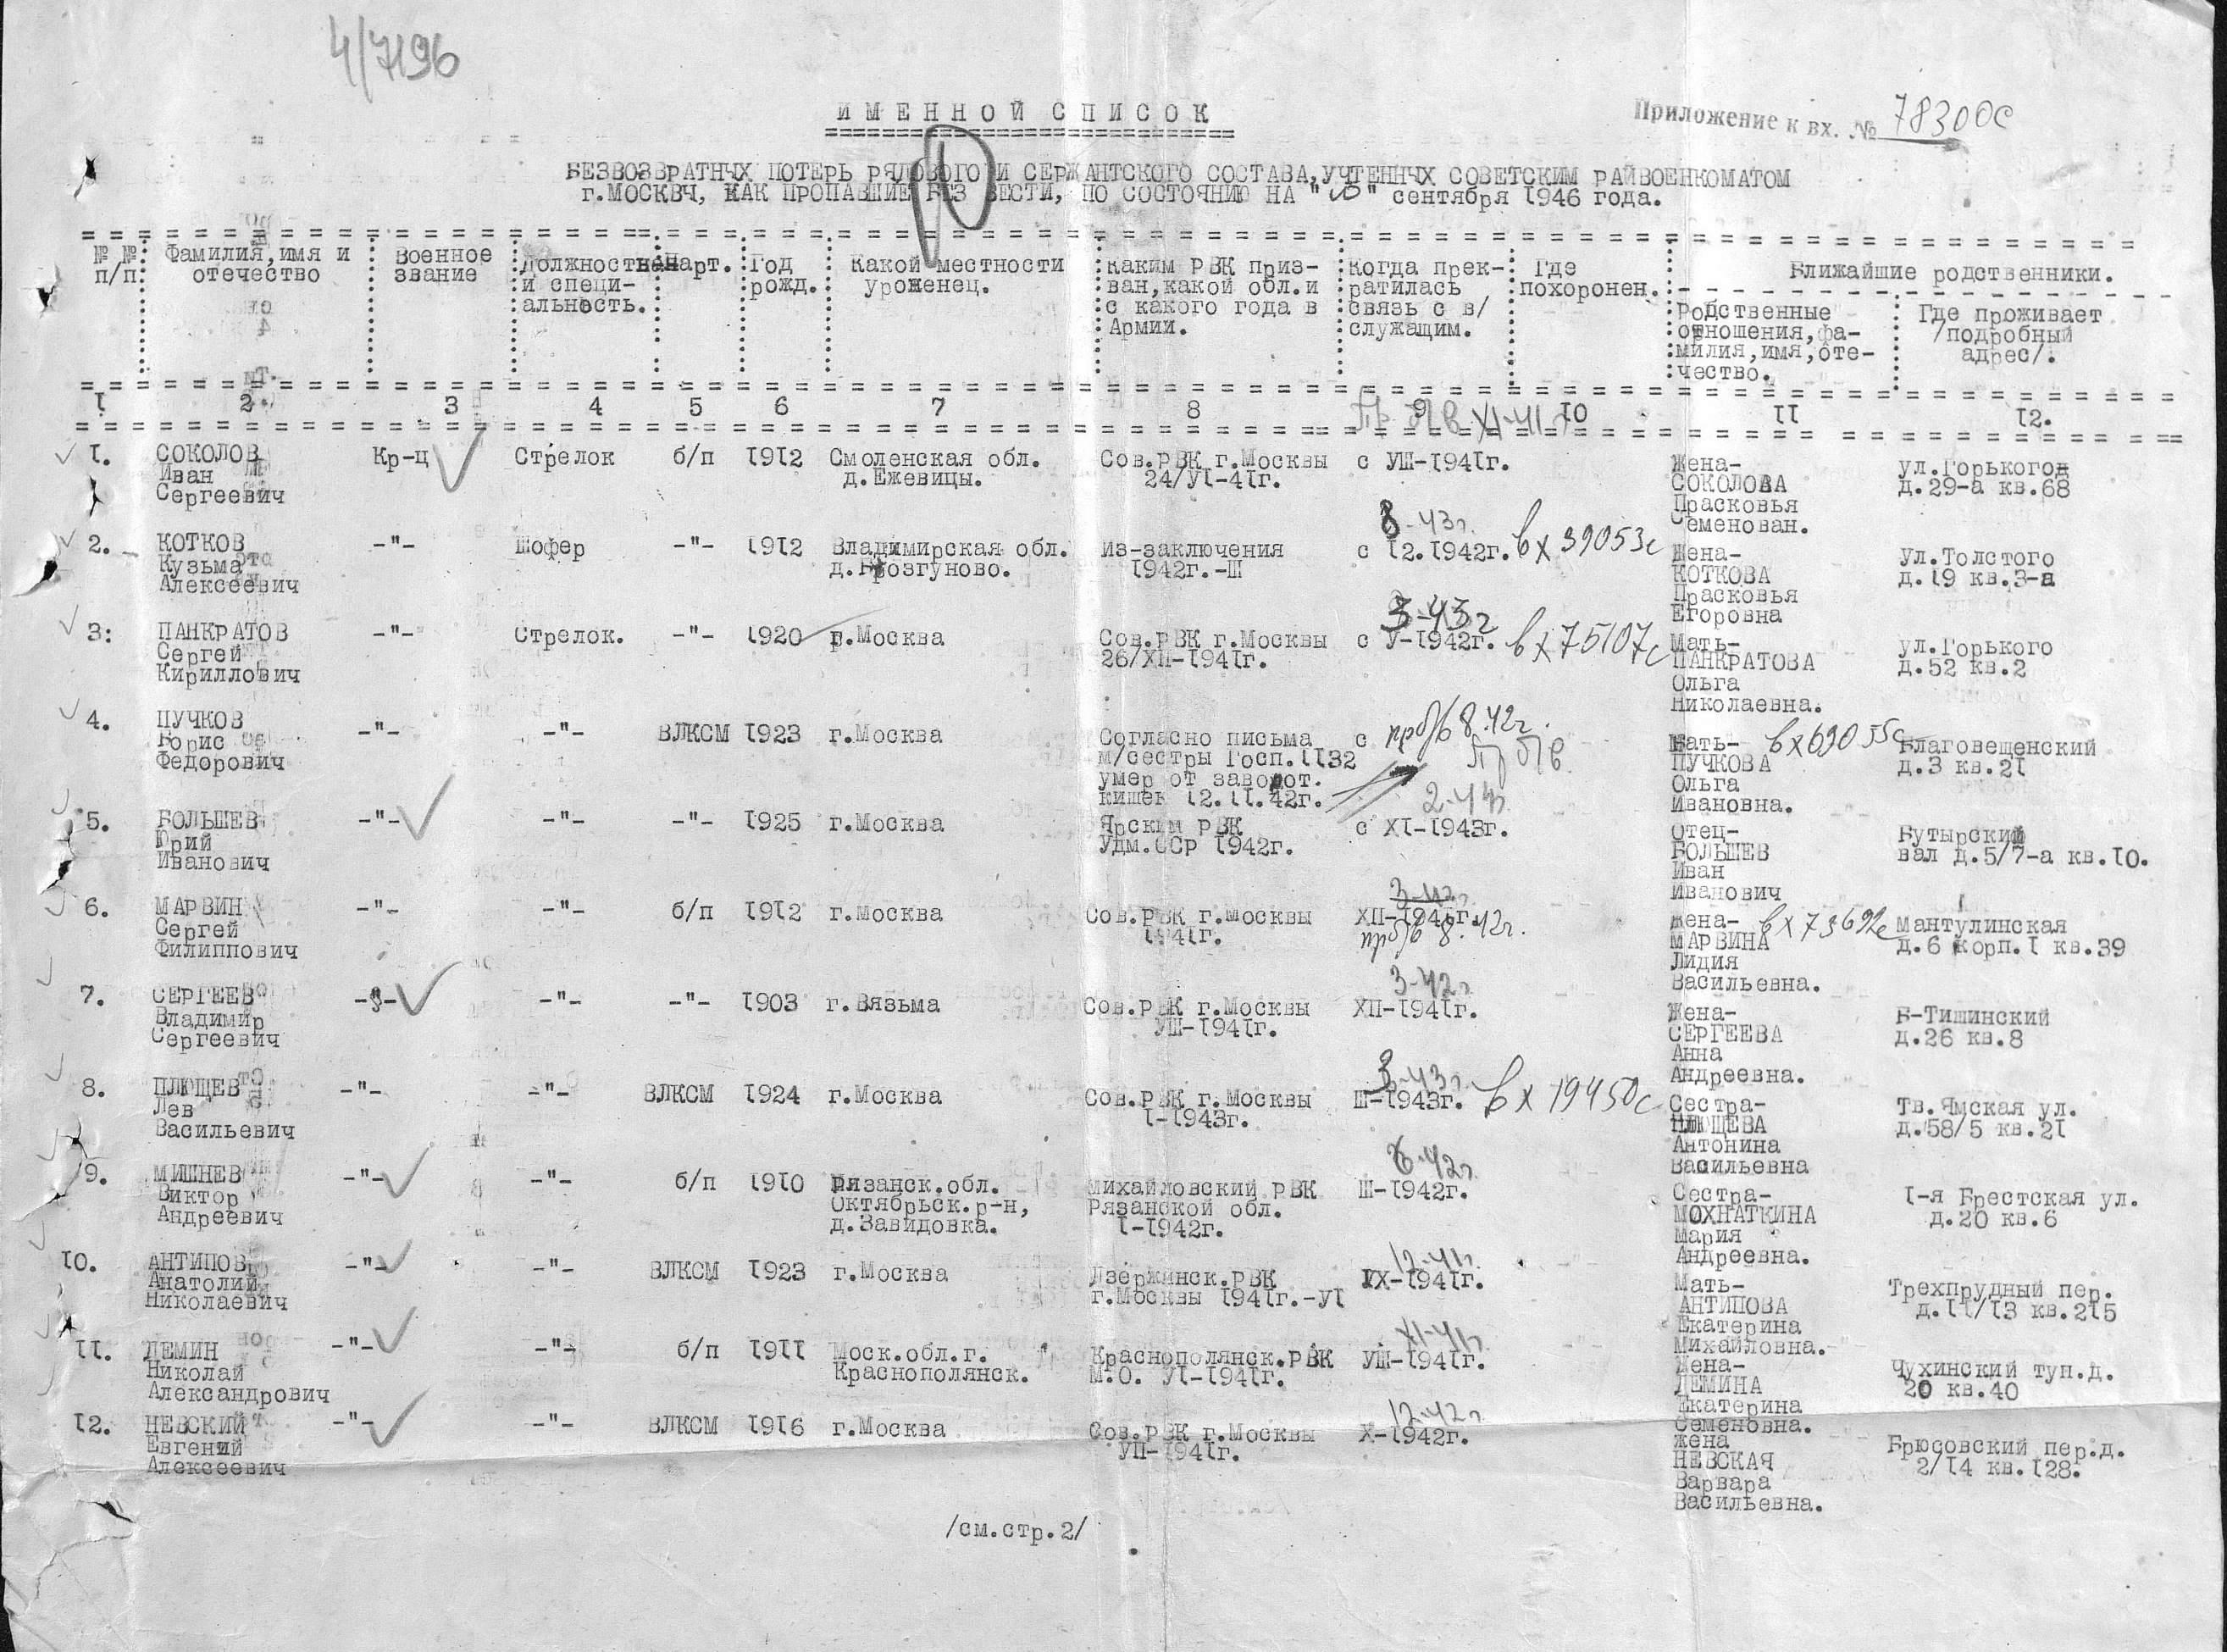 4/7196
ИМЕННОЙ СПИСОК
Приложение к вх. № 78300с
БЕЗВОЗВРАТНЧХ ПОТЕРЬ РЯДОВОГО И СЕРЖАНТСКОГО СОСТАВА, УЧТЕННЧХ СОВЕТСКИМ РАЙВОЕНКОМАТОМ
г.МОСКВЧ, КАК ПРОПАВШИЕ БЕЗ ВЕСТИ, ПО СОСТОЯНИЮ НА " " сентября 1946 года.
№ № п/п
Фамилия, имя и отчество
Военное звание
Должностн и специ-
альность.
Парт.
Год рожд.
Какой местности уроженец.
Каким РВК приз-
ван, какой обл. и
с какого года в
Армии.
Когда прек-
ратилась
связь с в/
служащим.
Где похоронен.
Ближайшие родственники.
Родственные
отношения, фа-
милия, имя, оте-
чество.
Где проживает
/подробный
адрес/.
1 2 3 4 5 6 7 8 9 10 11 12.
Пр б/в XI-41г
1. СОКОЛОВ Кр-ц Стрелок б/п 1912 Смоленская обл. Сов.РВК г.Москвы с УШ-1941г. Жена- ул.Горького
Иван д.Ежевицы. 24/У1-41г. СОКОЛОВА д.29-а кв.68
Сергеевич Прасковья
Семенован.
8-43г.
2. КОТКОВ -"- Шофер -"- 1912 Владимирская обл. Из-заключения с 12.1942г. вх 39053с Жена- ул.Толстого
Кузьма д.Брозгуново. 1942г.-Ш КОТКОВА д.19 кв.3-а
Алексеевич Прасковья
Егоровна
3-43г
3: ПАНКРАТОВ -"- Стрелок. -"- 1920 г.Москва Сов.РВК г.Москвы с У-1942г. вх 75107с Мать- ул.Горького
Сергей 26/ХП-1941г. ПАНКРАТОВА д.52 кв.2
Кириллович Ольга
Николаевна.
4. ПУЧКОВ -"- -"- ВЛКСМ 1923 г.Москва Согласно письма с прб/в 8.42г. Мать- вх69055с Благовещенский
Борис м/сестры Госп.1132 Пр б/в ПУЧКОВА д.3 кв.21
Федорович умер от заворот. Ольга
кишек 12.11.42г. Ивановна.
2-44г.
5. БОЛЬШЕВ -"- -"- -"- 1925 г.Москва Ярским РВК с Х1-1943г. Отец- Бутырский
Юрий Удм.ССР 1942г. БОЛЬШЕВ вал д.5/7-а кв.10.
Иванович Иван
Иванович
3-42г.
6. МАРВИН -"- -"- б/п 1912 г.Москва Сов.РВК г.Москвы ХП-1941г. Жена- вх73692с Мантулинская
Сергей 1941г. прб/в 8.42г. МАРВИНА д.6 корп.1 кв.39
Филиппович Лидия
Васильевна.
3-42г.
7. СЕРГЕЕВ -"- -"- -"- 1903 г.Вязьма Сов.РВК г.Москвы ХП-1941г. Жена- Б-Тишинский
Владимир УШ-1941г. СЕРГЕЕВА д.26 кв.8
Сергеевич Анна
Андреевна.
3-43г.
8. ПЛЮЩЕВ -"- -"- ВЛКСМ 1924 г.Москва Сов.РВК г.Москвы Ш-1943г. вх 19450с Сестра- Тв.Ямская ул.
Лев 1-1943г. ПЛЮЩЕВА д.58/5 кв.21
Васильевич Антонина
Васильевна
6-42г.
9. МИШНЕВ -"- -"- б/п 1910 Рязанск.обл. Михайловский РВК Ш-1942г. Сестра- 1-я Брестская ул.
Виктор Октябрьск.р-н, Рязанской обл. МОХНАТКИНА д.20 кв.6
Андреевич д.Завидовка. 1-1942г. Мария
Андреевна.
12-41г.
10. АНТИПОВ -"- -"- ВЛКСМ 1923 г.Москва Дзержинск.РВК IХ-1941г. Мать- Трехпрудный пер.
Анатолий г.Москвы 1941г.-У1 АНТИПОВА д.11/13 кв.215
Николаевич Екатерина
Михайловна.
XI-41г.
11. ДЕМИН -"- -"- б/п 1911 Моск.обл.г. Краснополянск.РВК УШ-1941г. Жена- Чухинский туп.д.
Николай Краснополянск. М.О. У1-1941г. ДЕМИНА 20 кв.40
Александрович Екатерина
Семеновна.
12-42г.
12. НЕВСКИЙ -"- -"- ВЛКСМ 1916 г.Москва Сов.РВК г.Москвы Х-1942г. Жена Брюсовский пер.д.
Евгений УП-1941г. НЕВСКАЯ 2/14 кв.128.
Алексеевич Варвара
Васильевна.
/см.стр.2/